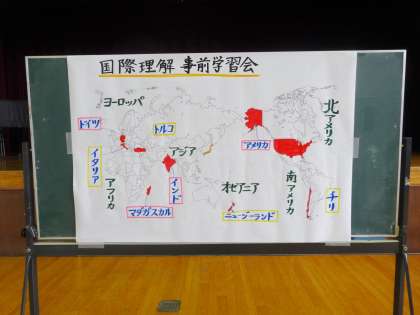 国際理解 事前学習会
ヨーロッパ
北アメリカ
ドイツ
トルコ
アメリカ
アジア
イタリア
アフリカ
インド
マダガスカル
オセアニア
ニュージーランド
南アメリカ
チリ